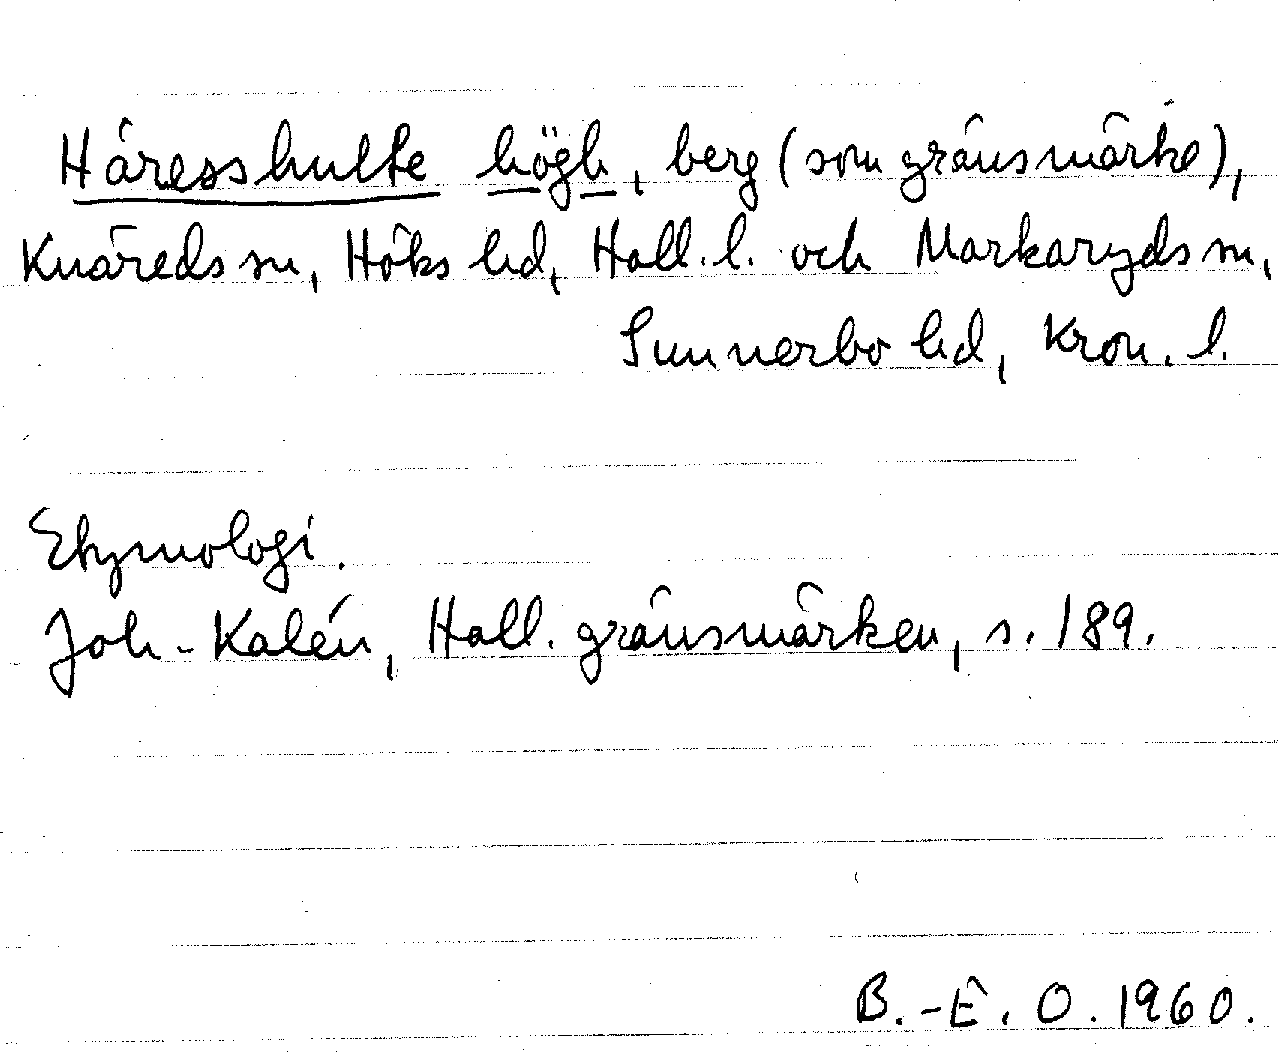 Håresshulte högh, berg (som gränsmärke),
Knäreds sn, Höks hd, Hall. l. och Markaryds sn,
Sunnerbo hd, Kron. l.
Etymologi.
Joh. Kalén, Hall. gränsmärken, s. 189.
B.-E. O. 1960.